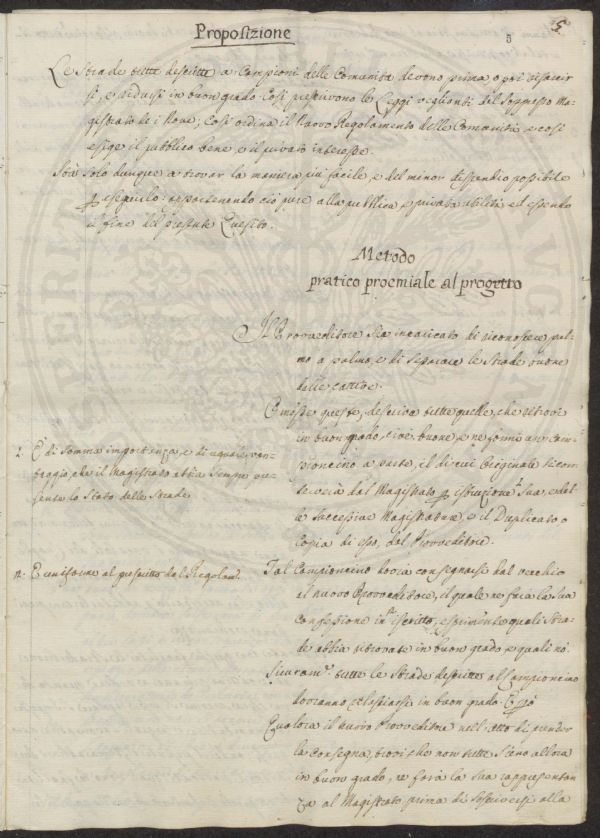 Proposizione
5
5
Le Strade tutte descritte a Campioni delle Comunità devono prima o poi risarcir
si, e ridursi in buon grado. Così prescrivono le Leggi veglianti del soppresso Ma
gistrato de i Nove; Così ordina il Nuovo Regolamento delle Comunità, e così
esige il pubblico bene, e il privato interesse.
Sarà solo dunque a trovar la maniera più facile e del minor dispendio possibile
eseguirlo: appartenendo ciò pure alla pubblica e privata utilità, ed essendo
il fine del presente Quesito.
Metodo
pratico proemiale al progetto
Il Provveditore sia incaricato di riconoscere pal-
mo a palmo, e di separare le Strade buone
dalle cattive.
queste, descriva tutte quelle, che ritrovi
in buon grado, cioè buone, e ne formi un cam-
pioncino a parte, il di cui Originale si con
serverà dal Magistrato istruzione sua, e del-
le successive Magistrature, e il Duplicato o
Copia di esso, dal Provveditore.
È di somma importanza, e di uguale van-
taggio, che il Magistrato abbia sempre pre-
sente lo Stato delle Strade
Tal Campioncino dovrà consegnarsi dal vecchio
al nuovo Provveditore, il quale ne farà la sua
confessione in iscritto, esprimente quali Stra-
de abbia ritrovate in buon grado, e quali nò.
È uniforme al prescritto del Regolam.
Sicuram.e tutte le Strade descritte al Campioncino
dovranno in buon grado.
Qualora il nuovo Provveditore nell'atto di prender
la consegna, trovi che non tutte sieno allora
in buon grado, ne farà la sua rappresentan
za al Magistrato prima di soscriversi alla